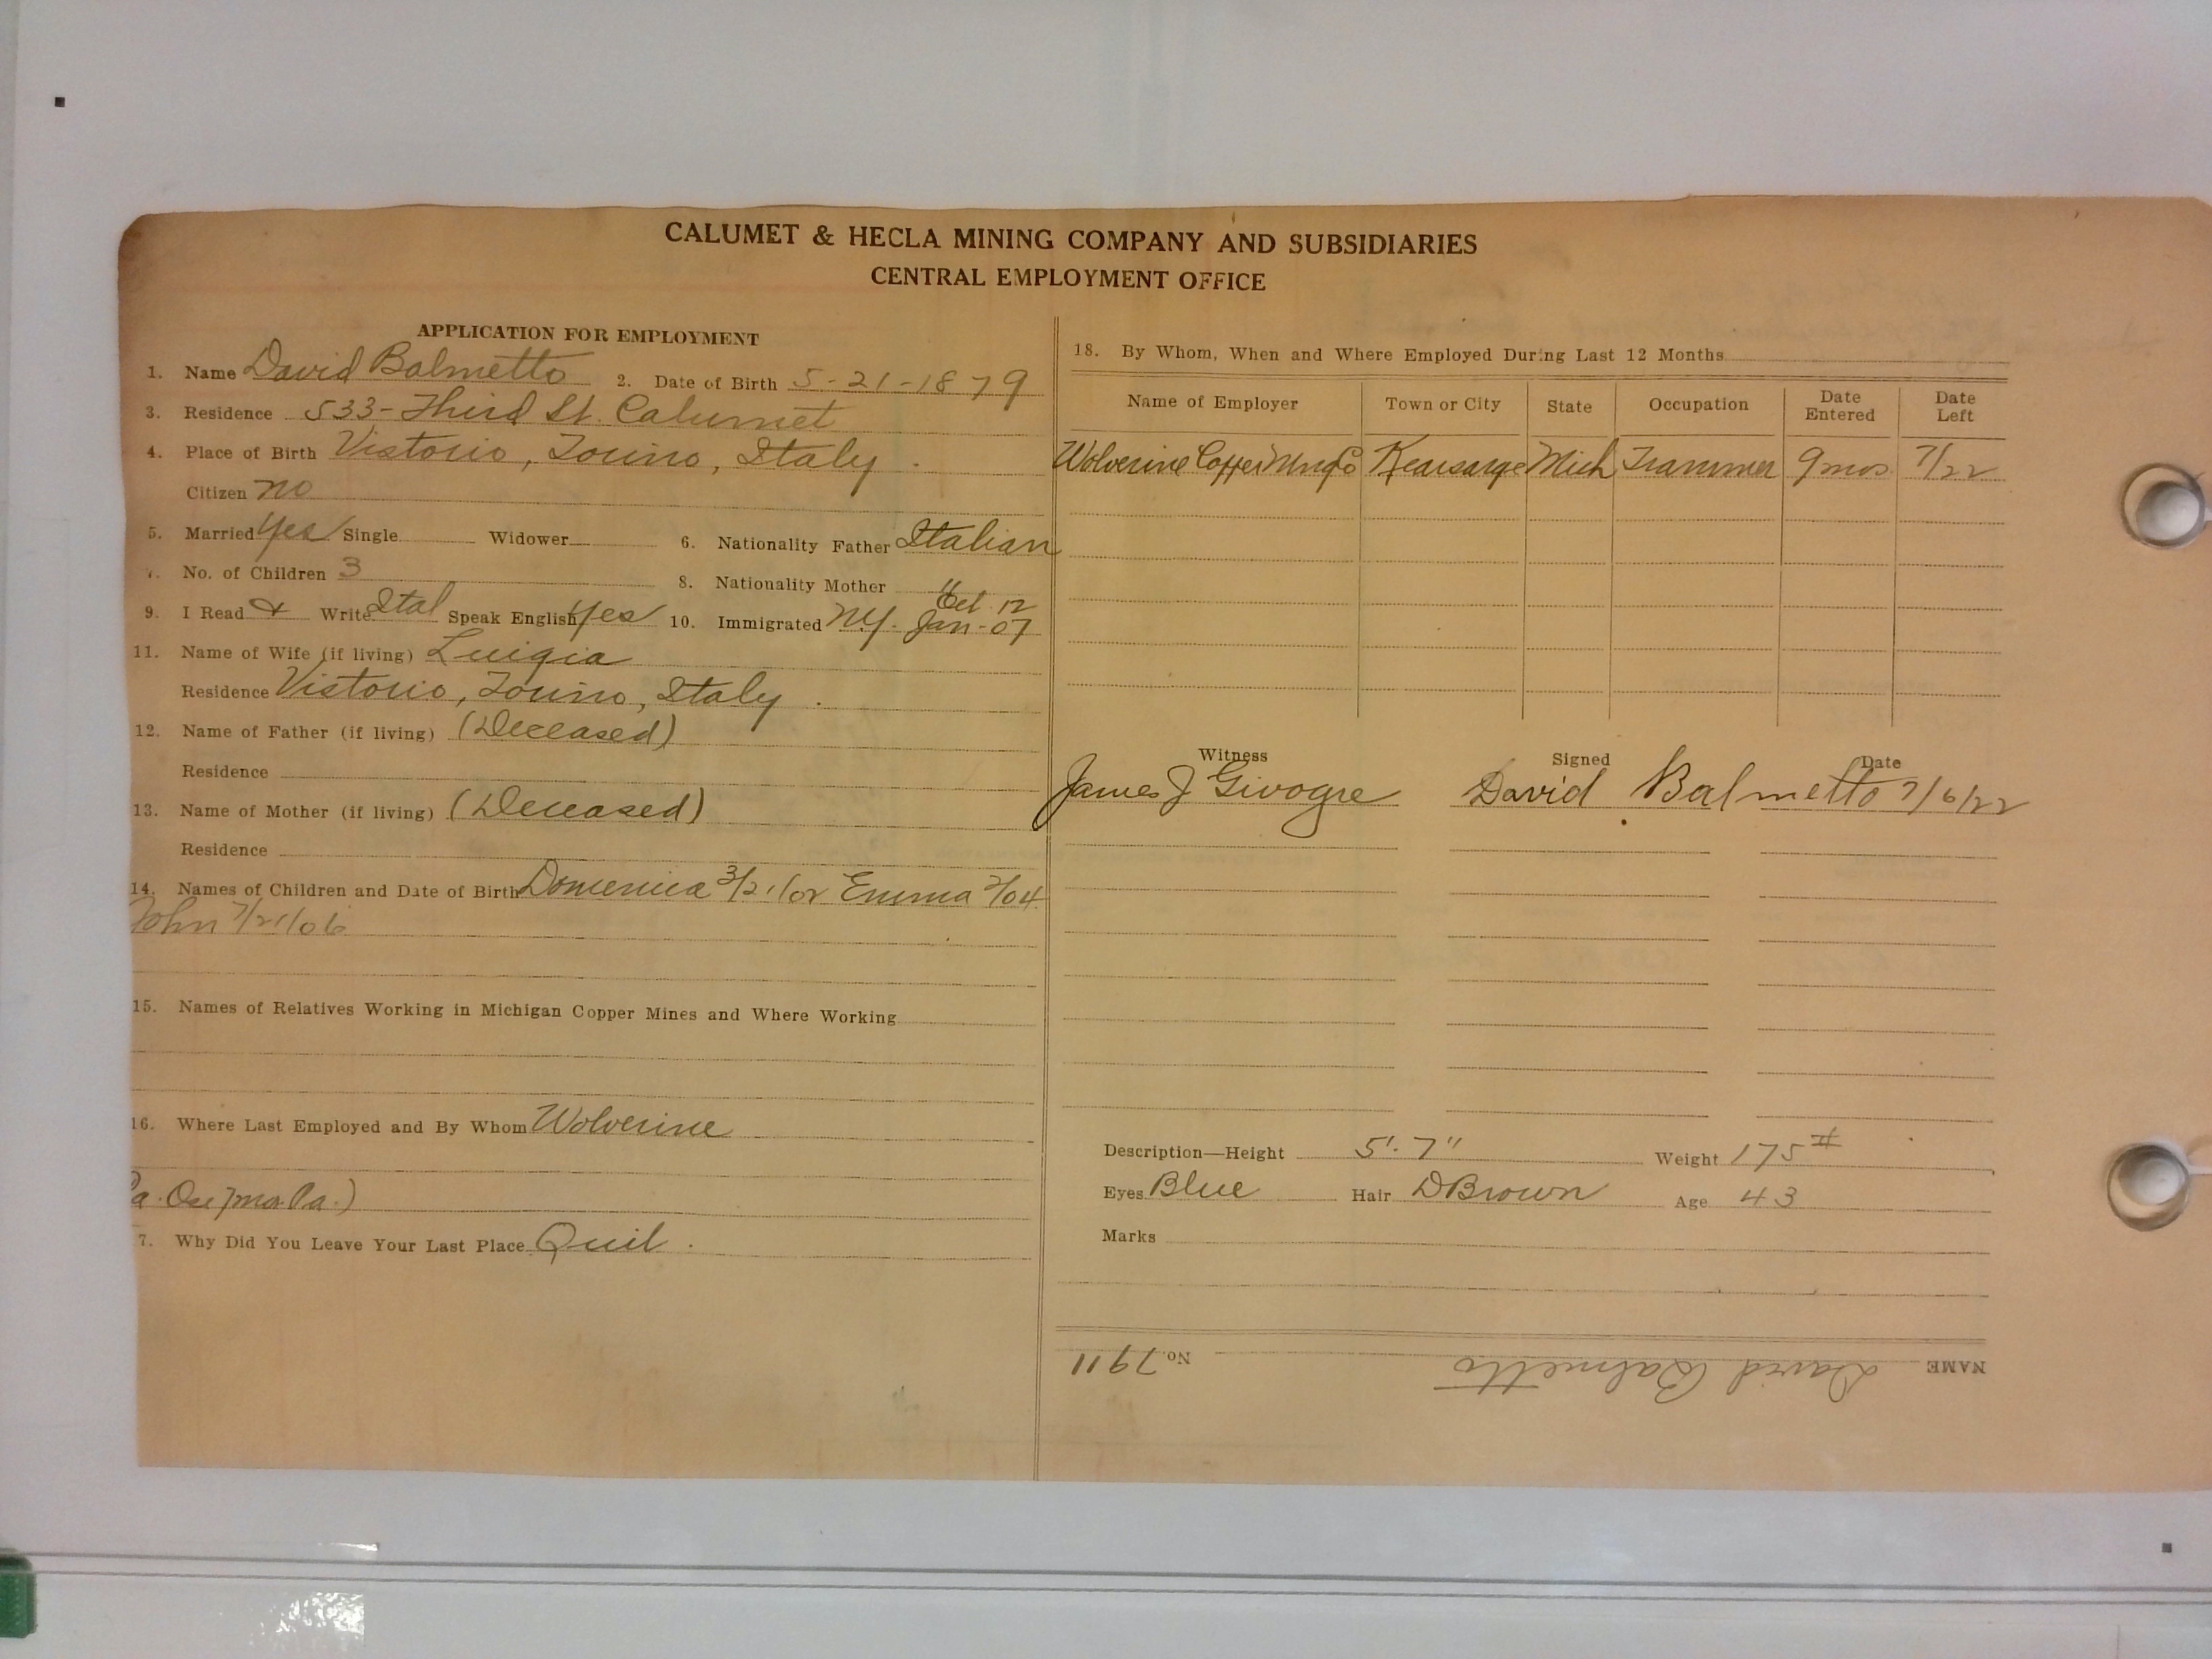 CALUMET & HECLA MINING COMPANY AND SUBSIDIARIES
CENTRAL EMPLOYMENT OFFICE
APPLICATION FOR EMPLOYMENT
1. Name David Balmetto 2. Date of Birth 5-21-1879
3. Residence 533-Third St. Calumet
4. Place of Birth Vistorio, Torino, Italy.
Citizen no
5. Married Yes Single Widower 6. Nationality Father Italian
7. No. of Children 3 8. Nationality Mother "
9. I Read & Write Ital Speak English Yes 10. Immigrated N.Y. Jan-07
Oct 12
11. Name of Wife (if living) Luigia
Residence Vistorio, Torino, Italy.
12. Name of Father (if living) (Deceased)
Residence
13. Name of Mother (if living) (Deceased)
Residence
14. Names of Children and Date of Birth Domenica 3/21/02 Emma 2/04
John 7/21/06
15. Names of Relatives Working in Michigan Copper Mines and Where Working
16. Where Last Employed and By Whom Wolverine
Pa.)
7. Why Did You Leave Your Last Place Quit.
18. By Whom, When and Where Employed During Last 12 Months
Name of Employer Town or City State Occupation Date Entered Date Left
Wolverine Copper Mng Co Kearsarge Mich Trammer 9 mos 7/22
Witness Signed Date
James J Givogre David Balmetto 7/6/22
Description—Height 5'-7" Weight 175#
Eyes Blue Hair D Brown Age 43
Marks
NAME David Balmetto No. 7911